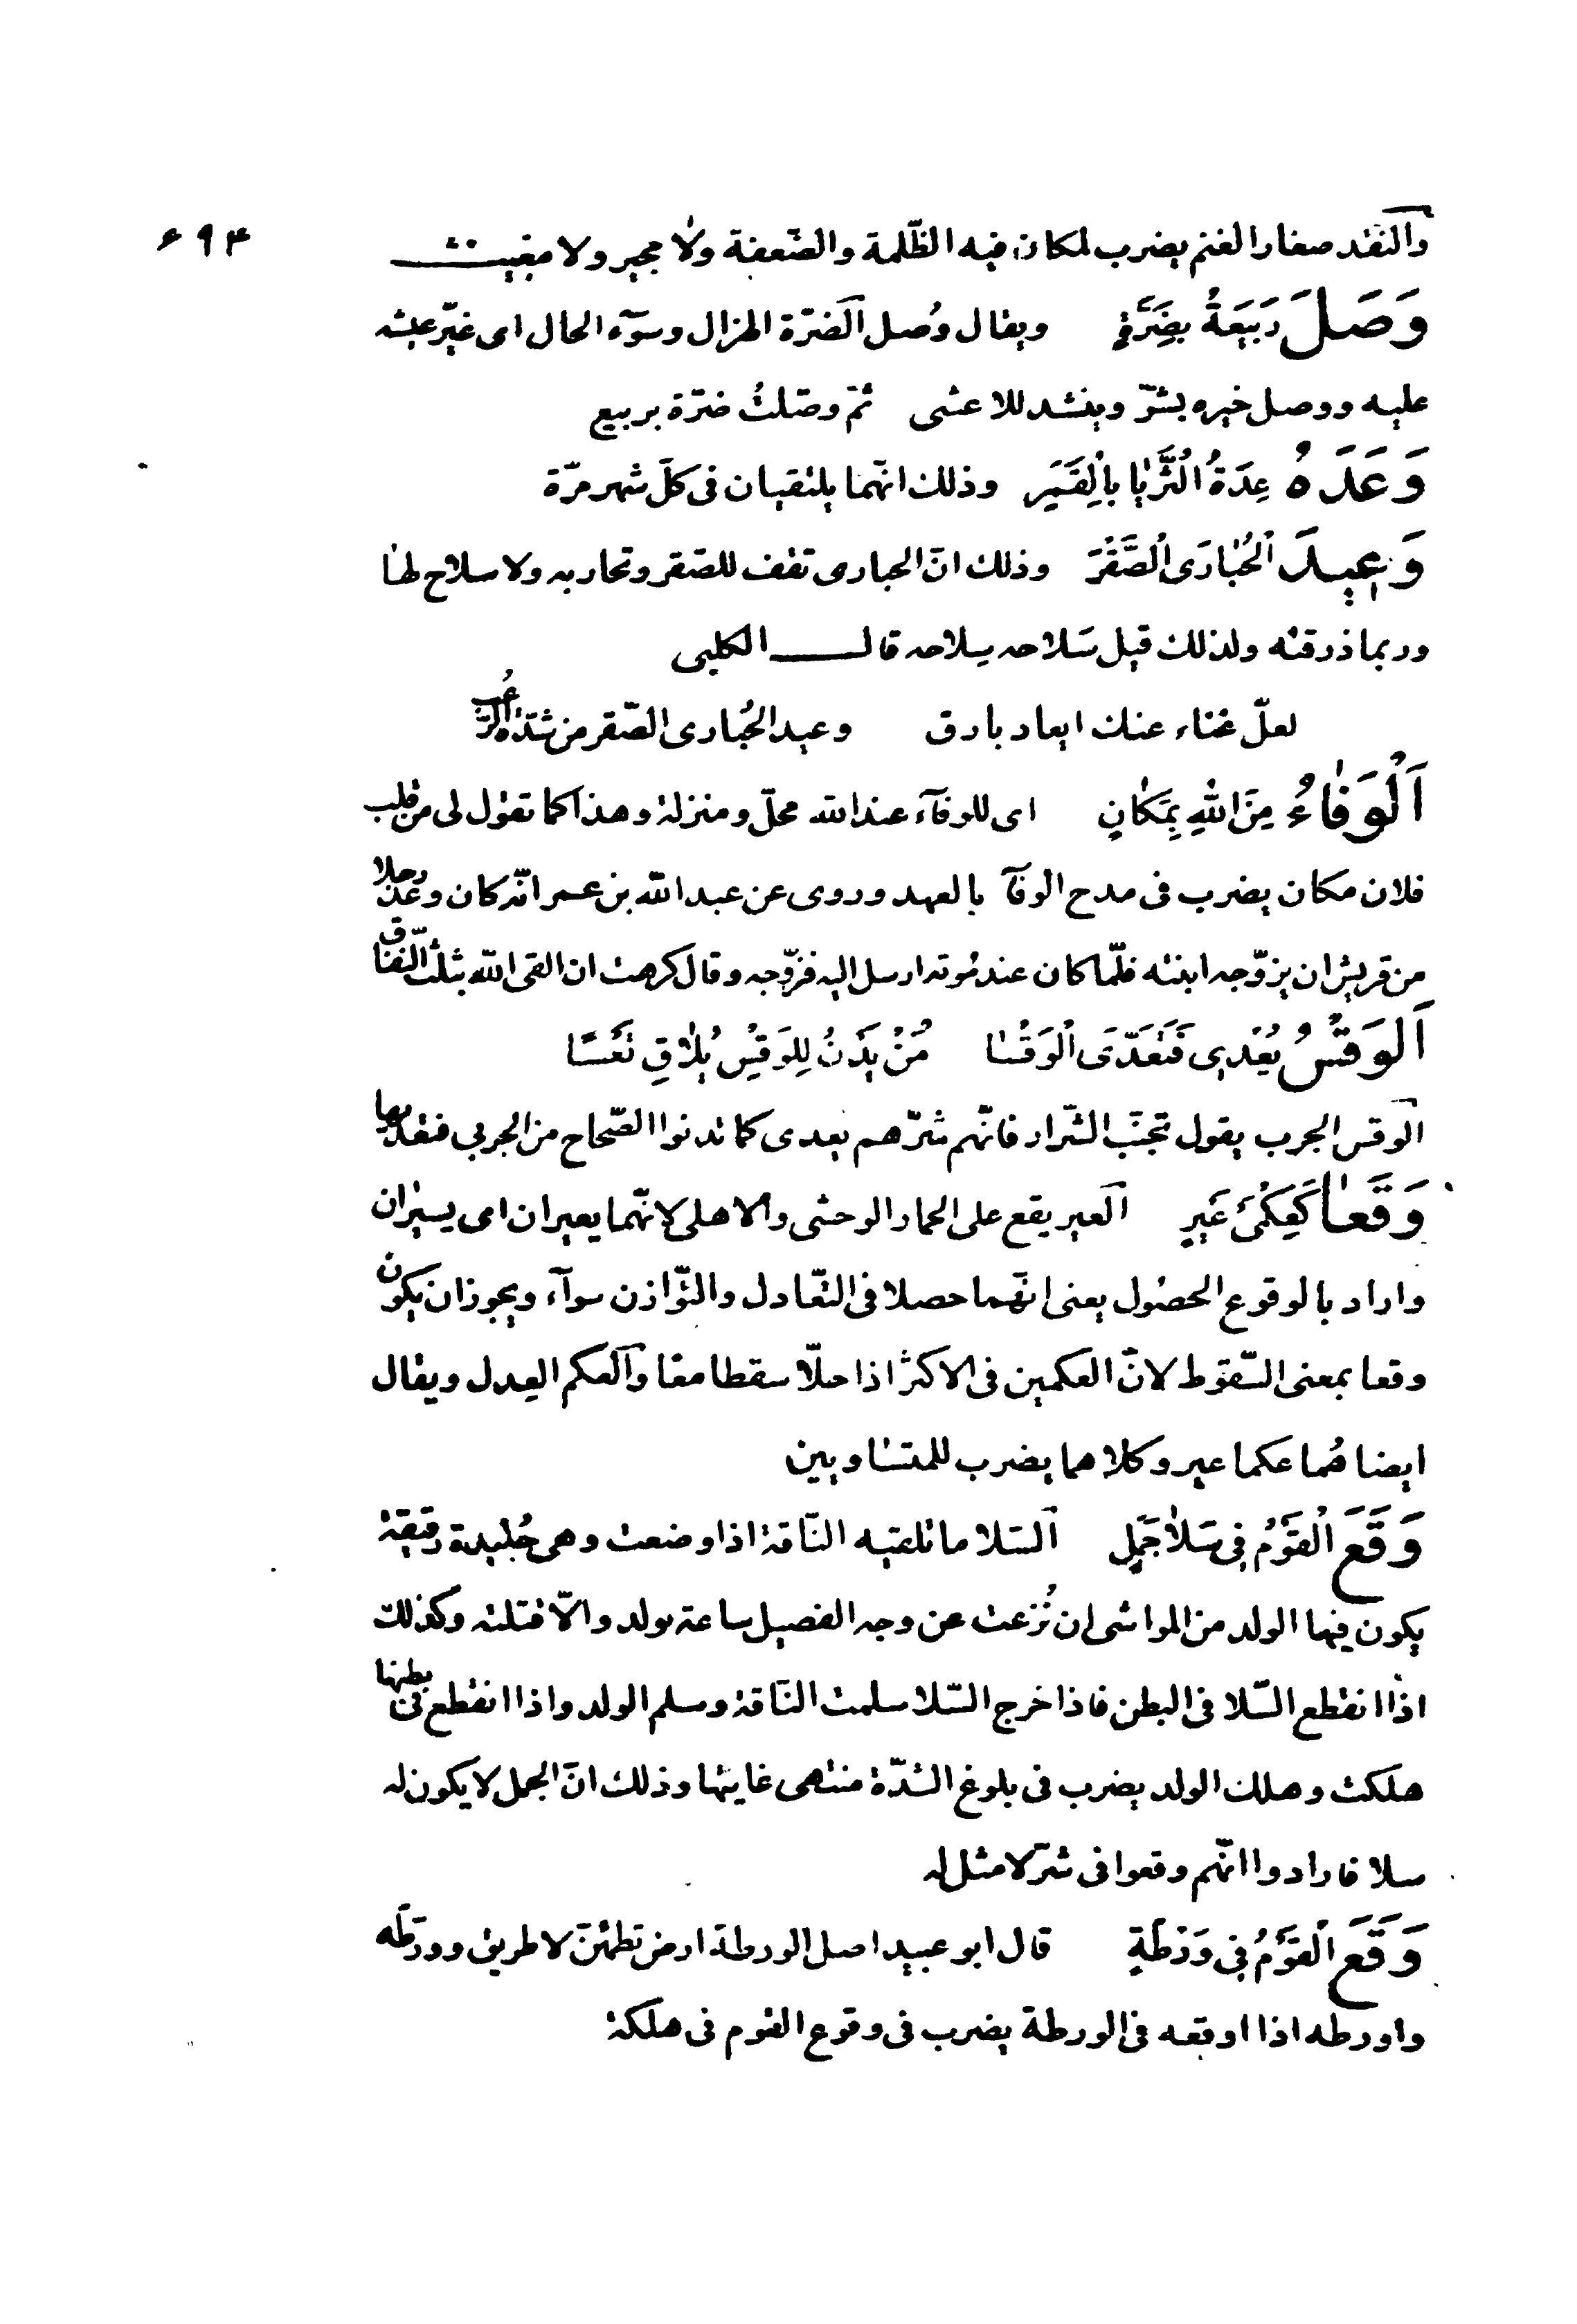 ۶۹۴
والنقد صغار الغنم يضرب لمكان فيه الظّلمة والضّعفة ولا مجير ولا مغيث
وَصَلَ رَبيعَةُ بِضَرَّةٍ ويقال وُصل الضرّة الهزال وسوٓء الحال اى غيّر عيشه
عليه ووصل خيره بشرّ وينشد للاعشى ثمّ وصّلتُ ضرّة بربيع
وَعَدَهُ عِدَةُ الْثُّرَيّا بِالْقَمَرِ وذلك انّهما يلتقيان فى كلّ شهر مرّة
وَعيدَ الْحُبٰارَى الْصَّقْرَ وذلك انّ الحبارى تقف للصّقر وتحاربه ولا سلاح لها
وربما ذرقته ولذلك قيل سَلاحه سِلاحه قال الكلبى
لعلّ غناء عنك ايعاد بارق وعيد الحُبارى الصّقر من شدّة الرّعُب
اَلْوَفٰاءُ مِنَ اللهِ بِمَكانٍ اى للوفآء عند الله محلّ ومنزلة وهذا كما تقول لى من قلب
فلان مكان يضرب فى مدح الوفآ بالعهد وروى عن عبد الله بن عمر انّه كان وعد رجلا
من قريش ان يزوّجه ابنته فلمّا كان عند موته ارسل اليه فزوّجه وقال كرهت ان القى الله بثلث النّفاق
اَلْوَقْسُ يُعْدِى فَتَعَدَّى الْوَقْسا مَنْ يَدْنُ لِلْوَقْسِ يُلاقِ تَعْسًا
الوقس الجرب يقول تجنّب الشّرار فانّهم شرّهم يعدى كما تدنوا الصّحاح من الجربى فتعديها
وَقَعٰا كَعِكْمَىْ عَيْرٍ العير يقع على الحمار الوحشى والاهلى لانّهما يعيران اى يسيران
واراد بالوقوع الحصول يعنى انّهما حصلا فى التّعادل والتّوازن سوآء ويجوز ان يكون
وقعا بمعنى السّقوط لانّ العكمين فى الاكثر اذا حلّا سقطا معا والعكم العِدل ويقال
ايضا هُما عكما عير وكلاهما يضرب للمتساويين
وَقَعَ الْقَوْمُ فى سَلاٰ جَمَلٍ السّلا ما تلقيه النّاقة اذا وضعت وهى جُليدة رقيقة
يكون فيها الولد من المواشى ان نُزعت عن وجه الفصيل ساعة يولد والّا قتلته وكذلك
اذا انقطع السّلا فى البطن فاذا خرج السّلا سلمت النّاقة وسلم الولد واذا انقطع فى بطنها
هلكت وهلك الولد يضرب فى بلوغ الشدّة منتهى غايتها وذلك انّ الجمل لا يكون له
سلا فارادوا انّهم وقعوا فى شرّ لا مثل له
وَقَعَ الْقَوْمُ فى وَرْطَةٍ قال ابو عبيد اصل الورطة ارض تطمئنّ لا طريق وورّطه
واورطه اذا اوقعه فى الورطة يضرب فى وقوع القوم فى هلكة